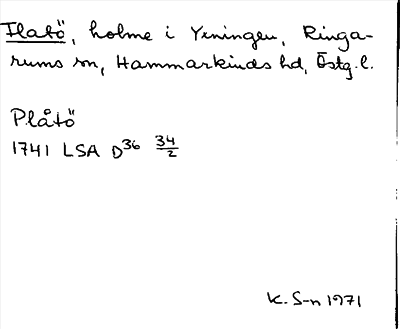 Flatö, holme i Yxningen, Ringa-
rums sn, Hammarkinds hd, Östg.l.
Plåtö
1741 LSA D36 34/2
K. S-n 1971